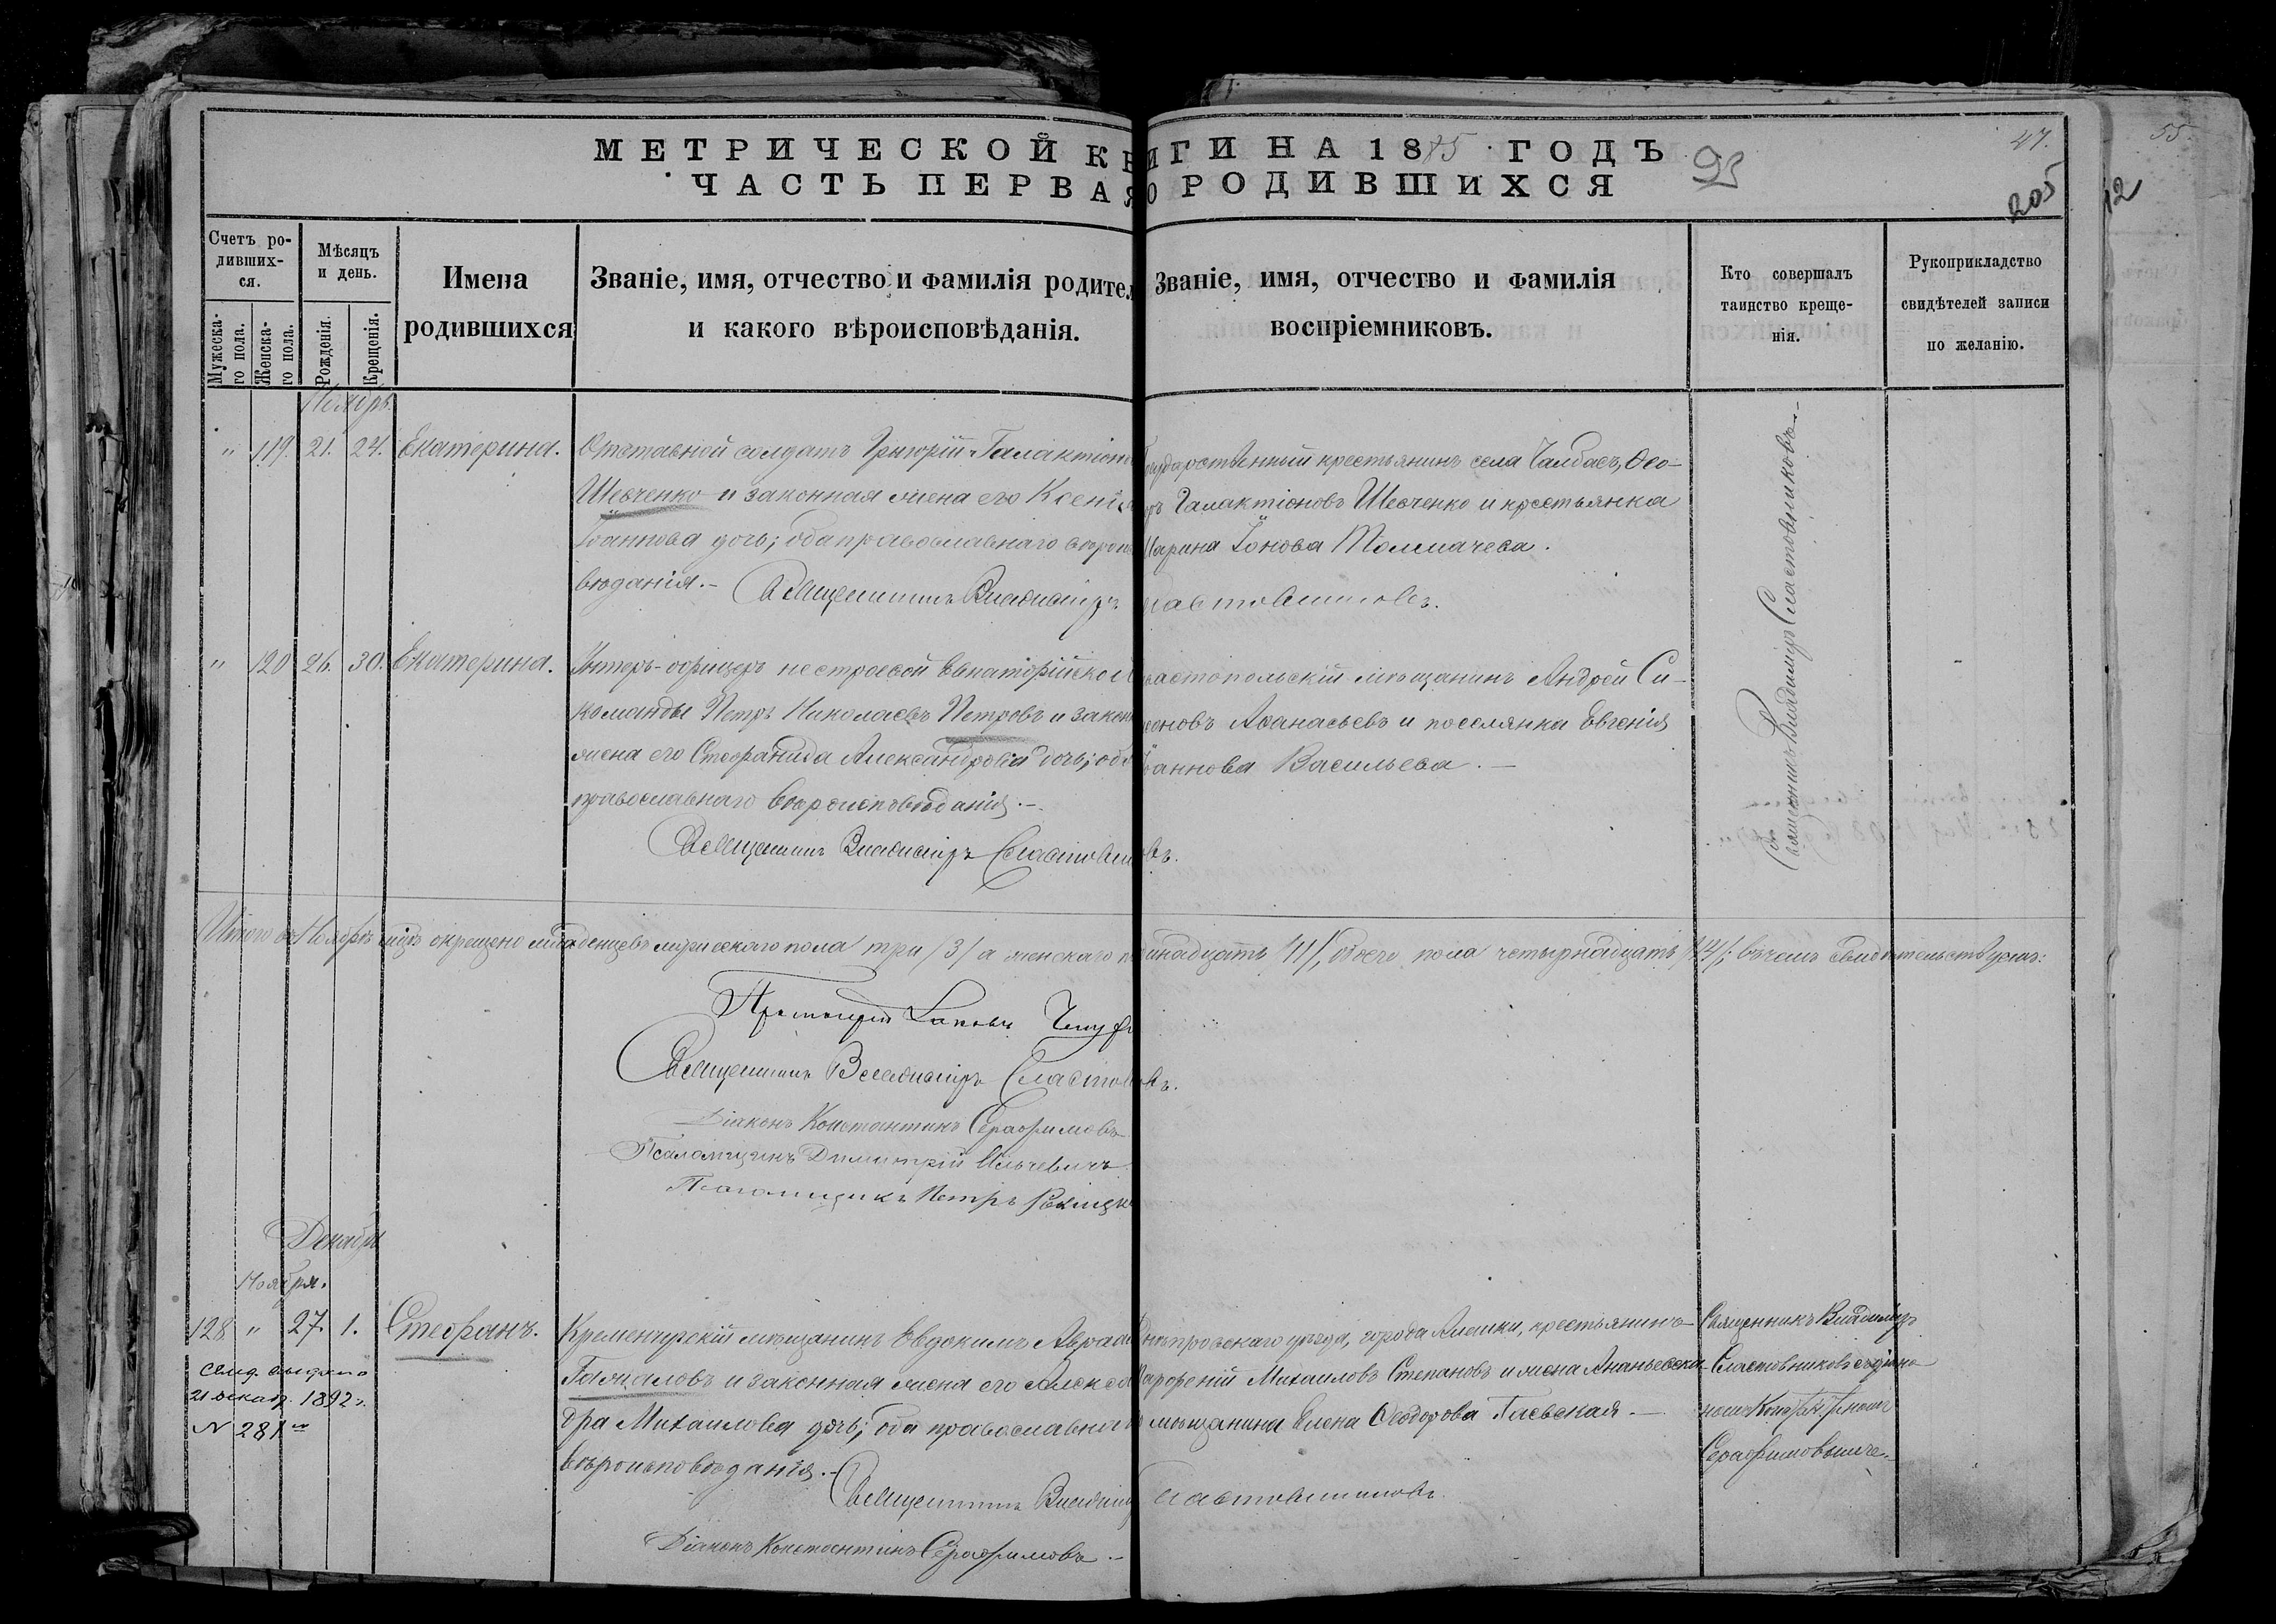 МЕТРИЧЕСКОЙ КНИГИ НА 1885 ГОДЪ
93
47.
55.
ЧАСТЬ ПЕРВАЯ О РОДИВШИХСЯ
205
12
Счетъ родившихся.
Мѣсяцъ и день.
Имена родившихся
Званіе, имя, отчество и фамилія родител
и какого вѣроисповѣданія.
Званіе, имя, отчество и фамилія
воспріемниковъ.
Кто совершалъ
таинство креще-
нія.
Рукоприкладство
свидѣтелей записи
по желанію.
Мужеска-
го пола.
Женска-
го пола.
Рожденія.
Крещенія.
Ноябрь.
" 119. 21. 24. Екатерина.
Отставной солдатъ Григорій Галактіоно
Шевченко и законная жена его Ксенія
Іоаннова дочь; оба православнаго вѣроис
вѣданія.–
Священникъ Владиміръ
сударственный крестьянинъ села Чалбасъ, Ѳео-
ръ Галактіоновъ Шевченко и крестьянка
Марина Іонова Толмачева.
ластовниковъ.
Священникъ Владиміръ Сластовниковъ–
" 120 26. 30. Екатерина.
Унтеръ-офицеръ нестроевой Евпаторійской
команды Петръ Николаевъ Петровъ и закон
жена его Стефанида Александрова дочь; оба
православнаго вѣроисповѣданія.–
Священникъ Владиміръ Сластовниковъ.
вастопольскій мѣщанинъ Андрей Си-
еоновъ Аѳанасьевъ и поселянка Евгенія
Іоаннова Васильева.–
Итого въ Ноябрѣ мцѣ окрещено младенцевъ мужескаго пола три /3/ а женскаго п инадцать /11/, обоего пола четырнадцать /14/; въ чемъ свидѣтельствуемъ:
Протоіерей Іаковъ
Священникъ Владиміръ Сластовниковъ.
Діаконъ Константинъ Серафимовъ
Псаломщикъ Димитрій Ильчевичъ
Псаломщикъ Петръ
Декабрь
Ноября.
128 " 27. 1. Стефанъ.
Свид. выдано
21 декабр. 1892 г.
N 281
Кременчугскій мѣщанинъ Евдокимъ Авраам
и законная жена его Алексан
дра Михаилова дочь; оба православнаго
вѣроисповѣданія.–
Священникъ Владимі
Діаконъ Константинъ Серафимовъ.–
Днѣпровскаго уѣзда, города Алешки, крестьянинъ
Парфеній Михаиловъ Степановъ и жена Ананьевска
мѣщанина Елена Ѳеодорова Гаевская.–
Сластовниковъ.
Священникъ Владиміръ
Сластовниковъ съ діако
номъ Константиномъ
Серафимовымъ.